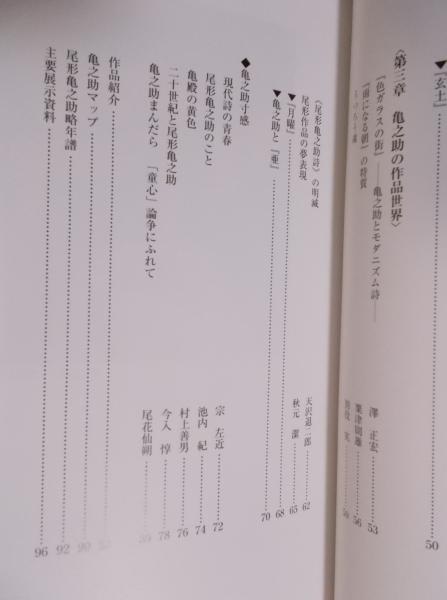 ▼『玄土』 50
〈第三章　亀之助の作品世界〉
『色ガラスの街』――亀之助とモダニズム詩―― 澤　正宏 53
『雨になる朝』の特質 粟津則雄 56
〈尾形亀之助詩〉の明滅 天沢退二郎 62
尾形作品の夢表現 秋元　潔 65
▼『月曜』 68
▼亀之助と『亜』 70
◆亀之助寸感
現代詩の青春 宗　左近 72
尾形亀之助のこと 池内　紀 74
亀殿の黄色 村上善男 76
二十世紀と尾形亀之助 今入　惇 78
亀之助まんだら　「童心」論争にふれて 尾花仙朔
作品紹介
亀之助マップ 90
尾形亀之助略年譜 92
主要展示資料 96